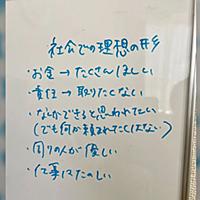 社会での理想の形
・お金→たくさんほしい
・責任→取りたくない
・なんかできると思われたい
(でも何か頼まれたくはない)
・周りの人が優しい
・仕事はたのしい